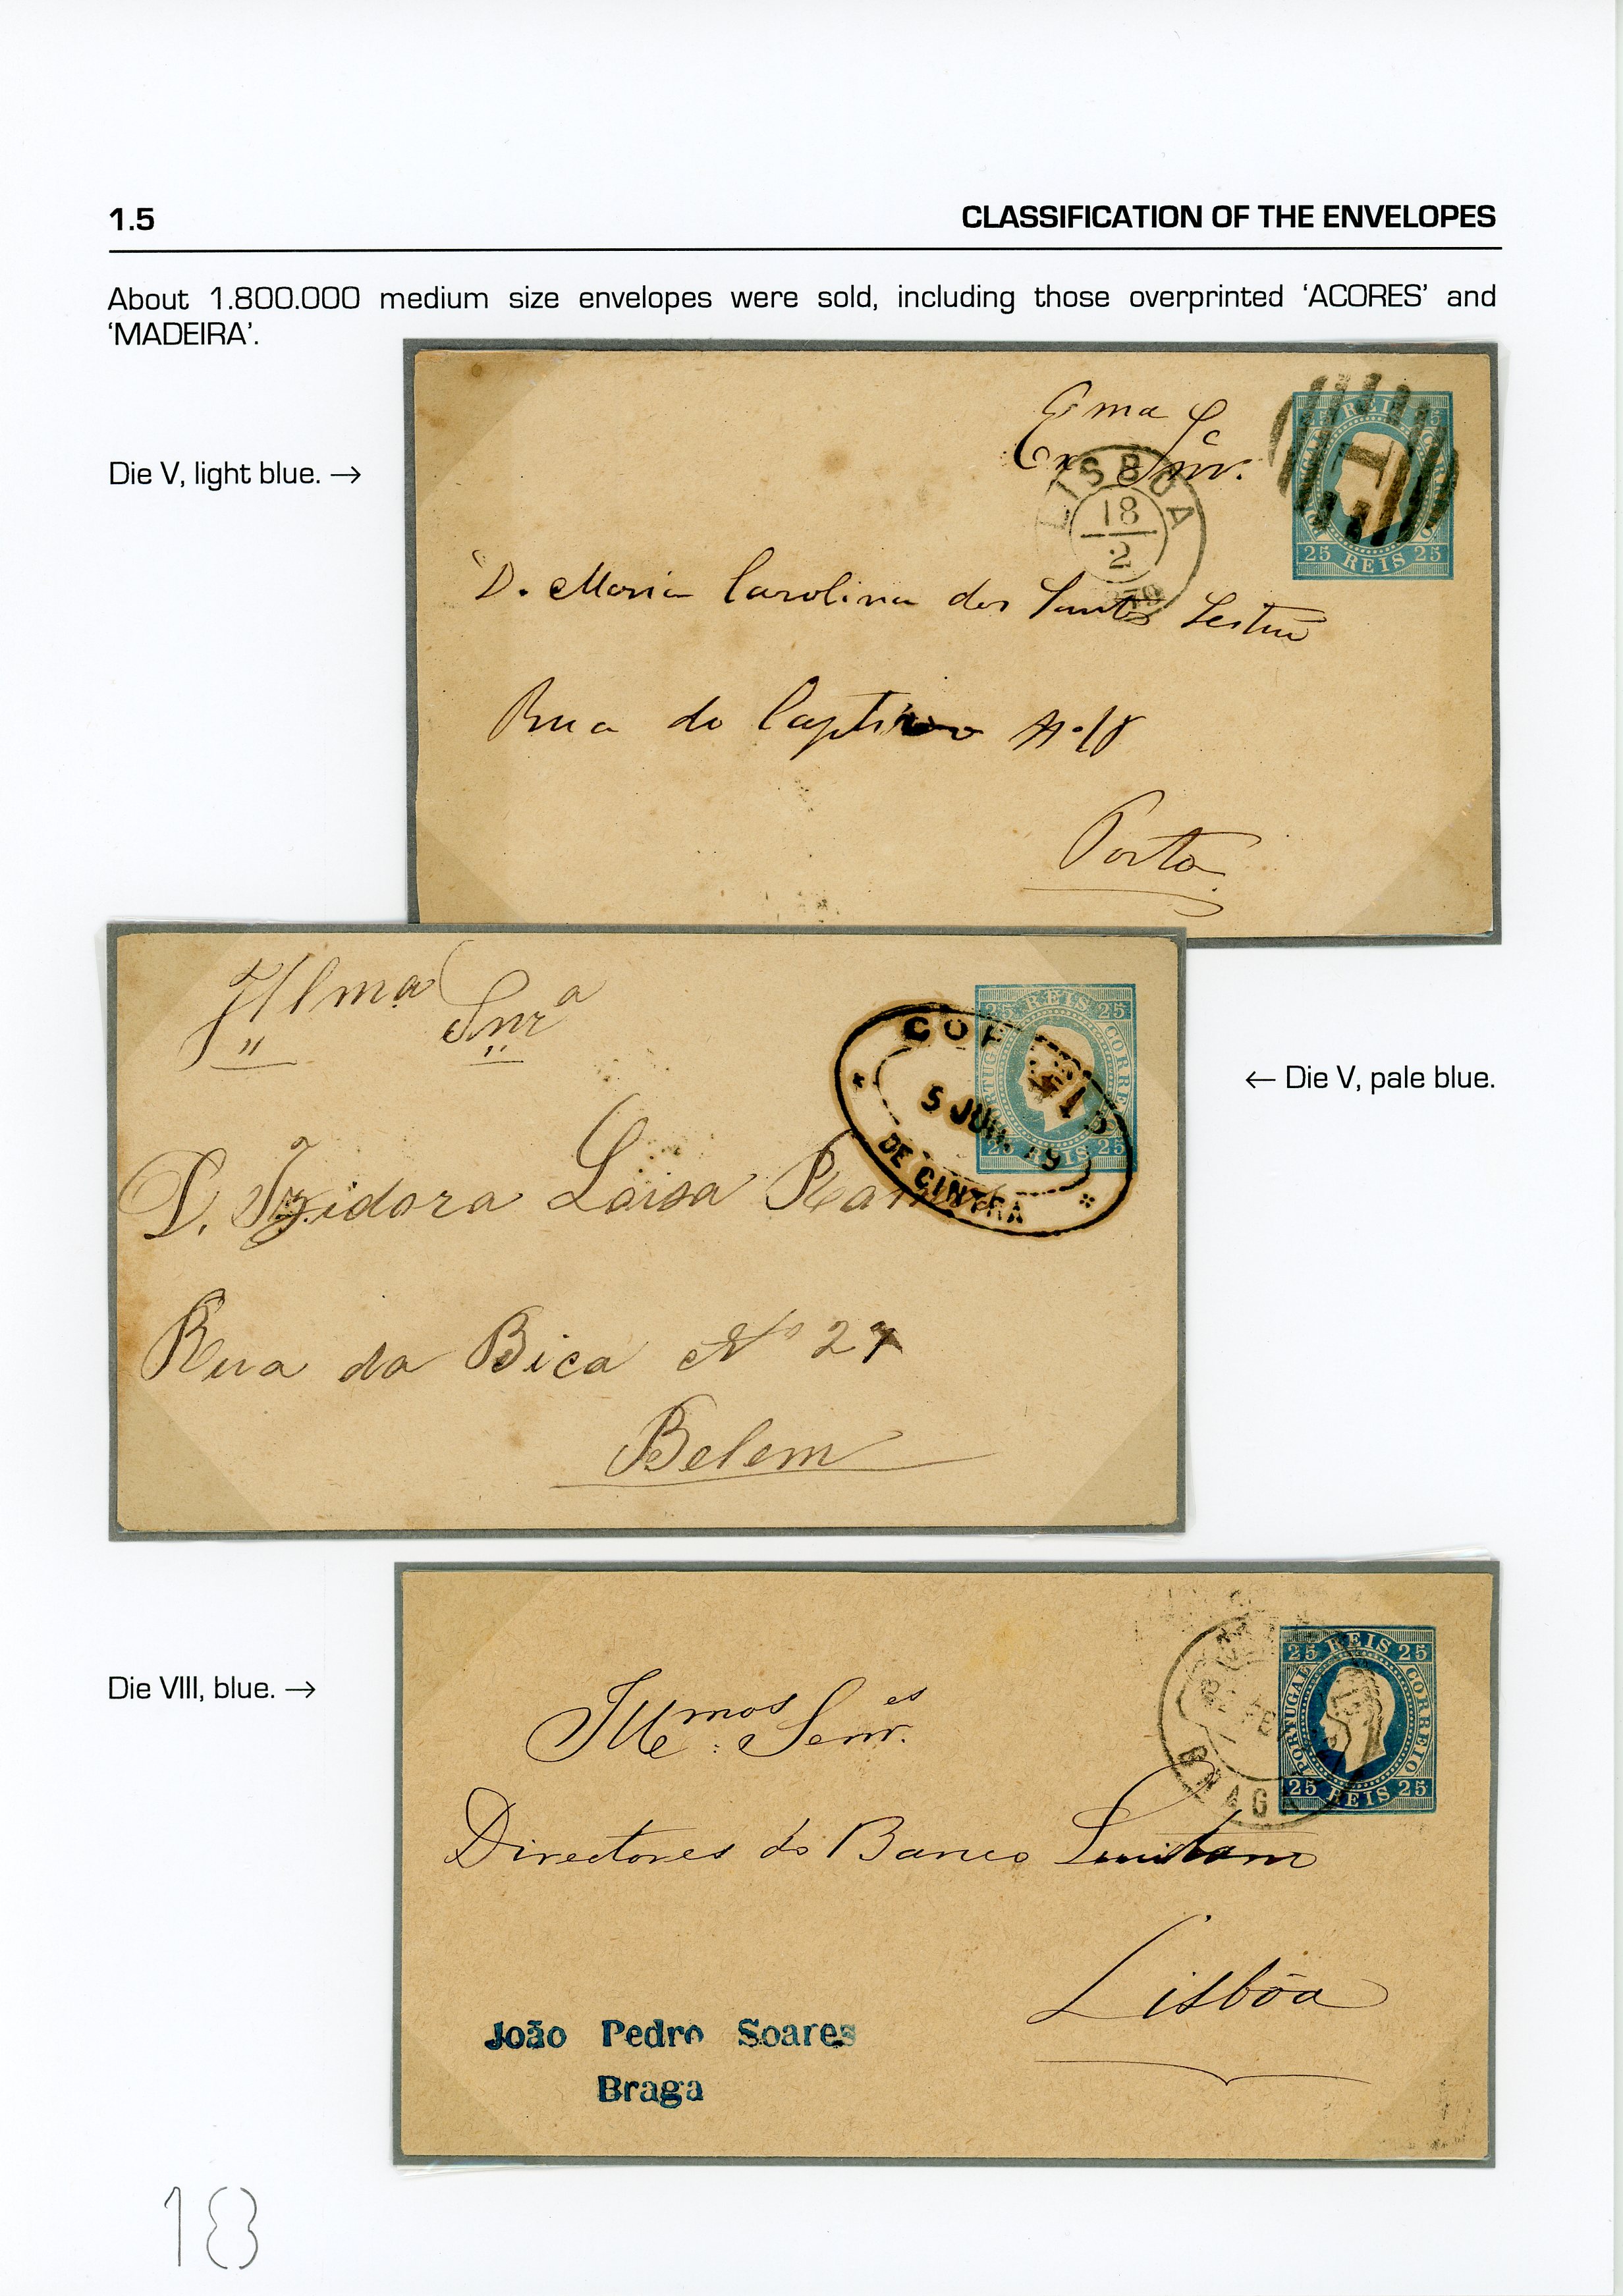 1.5 CLASSIFICATION OF THE ENVELOPES
About 1.800.000 medium size envelopes were sold, including those overprinted ‘ACORES’ and
‘MADEIRA’.
Die V, light blue. →
Snr.
LISBOA
18
2
25 REIS 25
D. Maria Carolina dos Santos
Rua do Captivo
Porto
← Die V, pale blue.
Illma Snra
25 REIS 25
CORREIO
5 JUN. 79
DE CINTRA
25 REIS 25
D. Izidora Loisa
Rua da Bica Nº 27
Belem
Die VIII, blue. →
25 REIS 25
PORTUGAL
CORREIO
25 REIS 25
BRAGA
Illmos Senres
Directores do Banco Lusitano
Lisbôa
João Pedro Soares
Braga
18